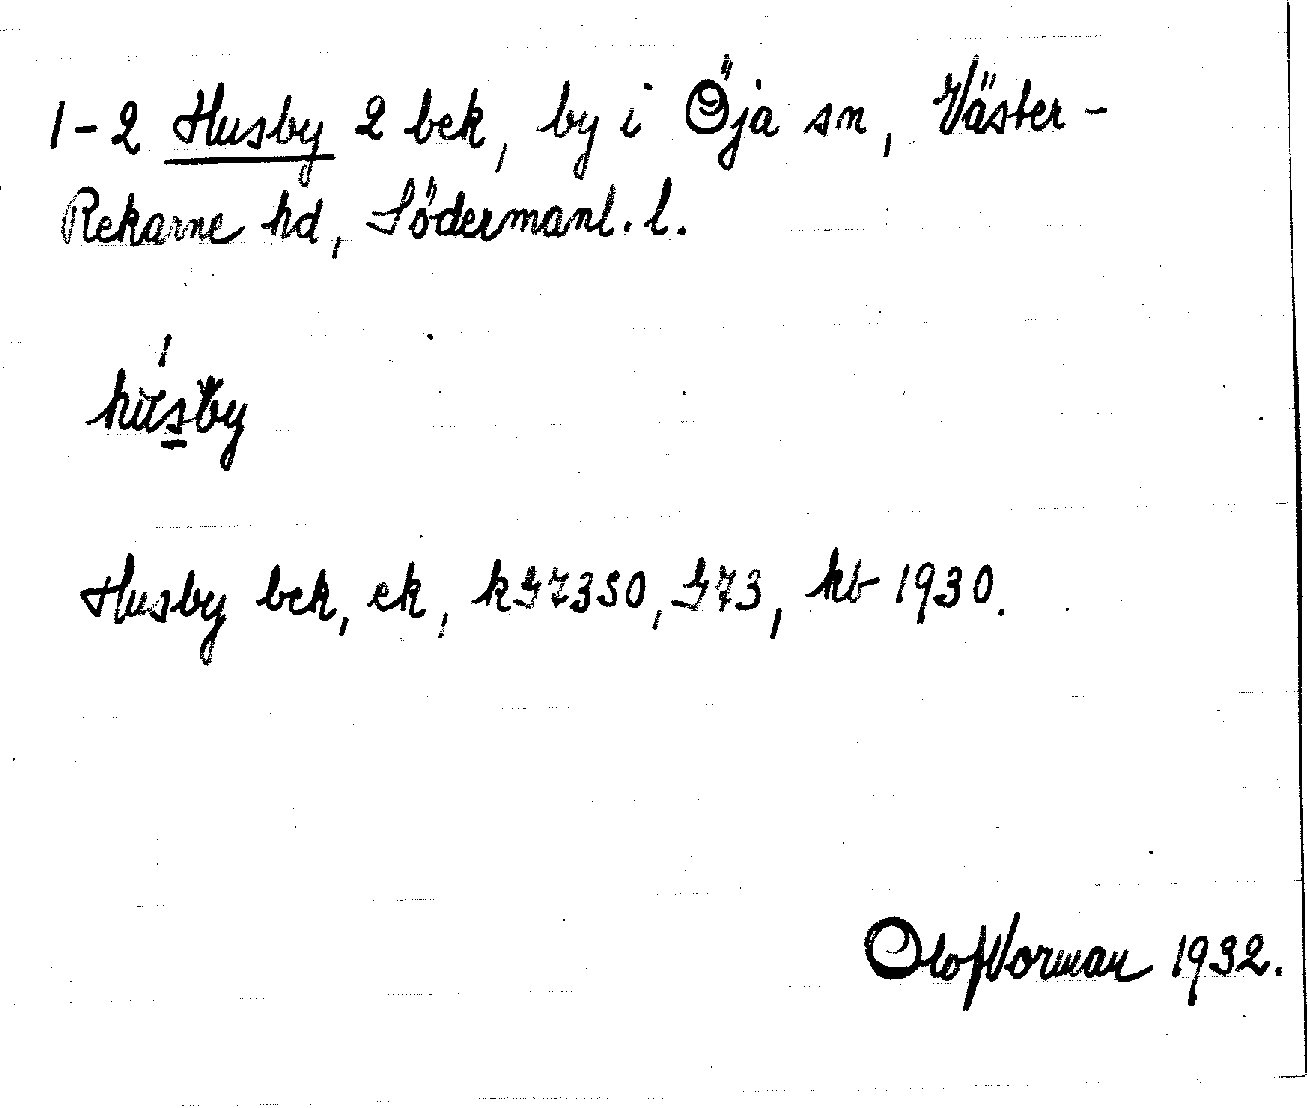 1-2 Husby 2 bek, by i Öja sn, Väster-
Rekarne hd, Södermanl. l.
húsby
Husby bek, ek, kGZ350, GZ3, hb 1930.
Olof Norman 1932.